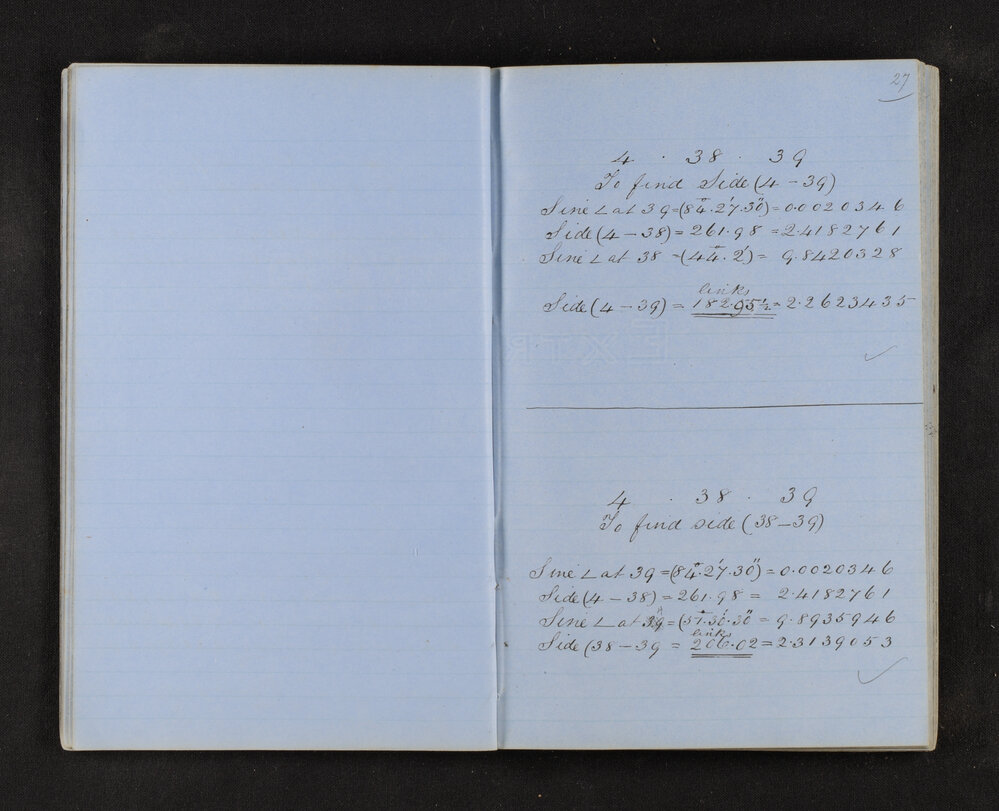 27
4 . 38 . 39
To find Side (4 – 39)
Sine ∠ at 39 = (84°. 27'. 30") = 0.0020346
Side (4 – 38) = 261.98 = 2.4182761
Sine ∠ at 38 = (44°. 2') = 9.8420328
links
Side (4 – 39) = 182.95½ = 2.2623435
4 . 38 . 39
To find side (38 – 39)
Sine ∠ at 39 = (84°. 27'. 30") = 0.0020346
Side (4 – 38) = 261.98 = 2.4182761
Sine ∠ at = (51°. 30'. 30" = 9.8935946
links
Side (38 – 39 = 206.02 = 2.3139053